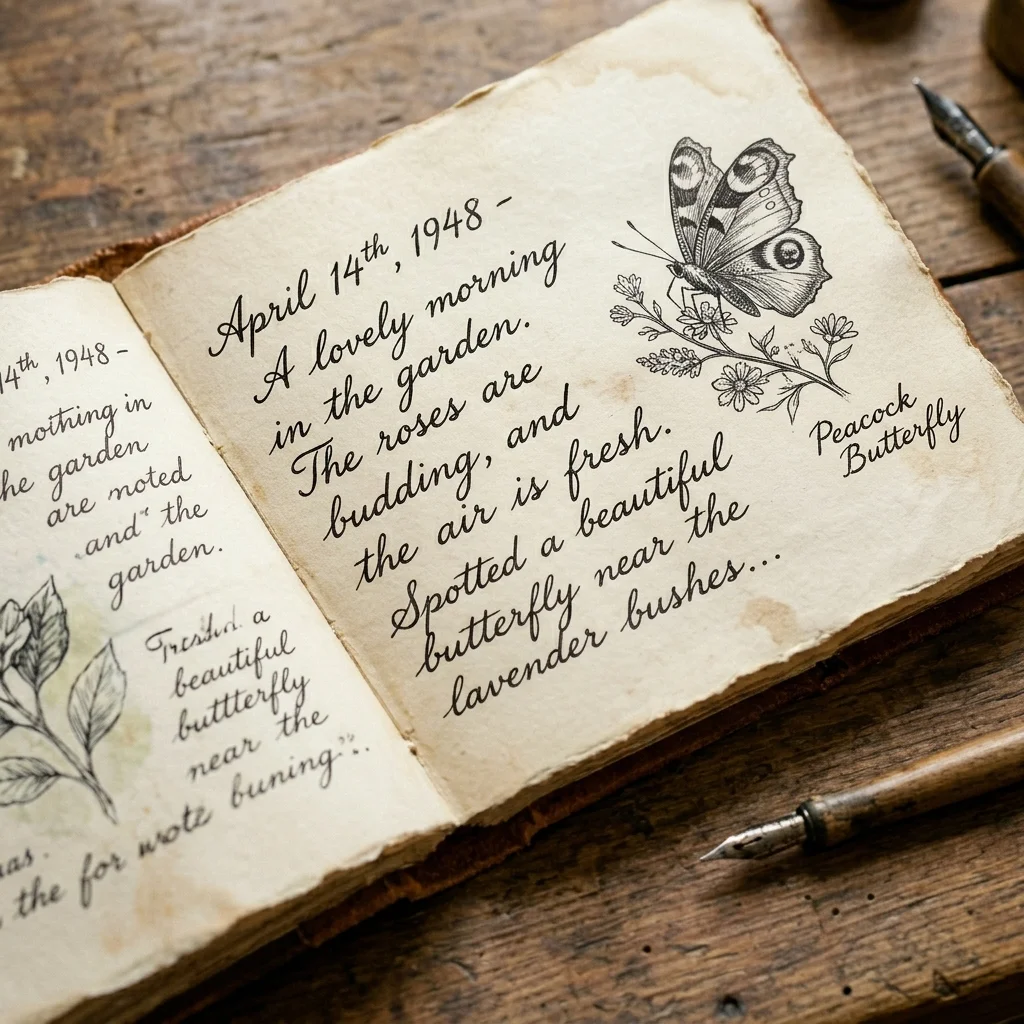 14th, 1948 –
mothing in
the garden
are noted
and" the
garden.
a
beautiful
buttterfly
near the
buning"..
the for wote
April 14th, 1948 –
A lovely morning
in the garden.
The roses are
budding, and
the air is fresh.
Spotted a beautiful
butterfly near the
lavender bushes...
Peacock
Butterfly